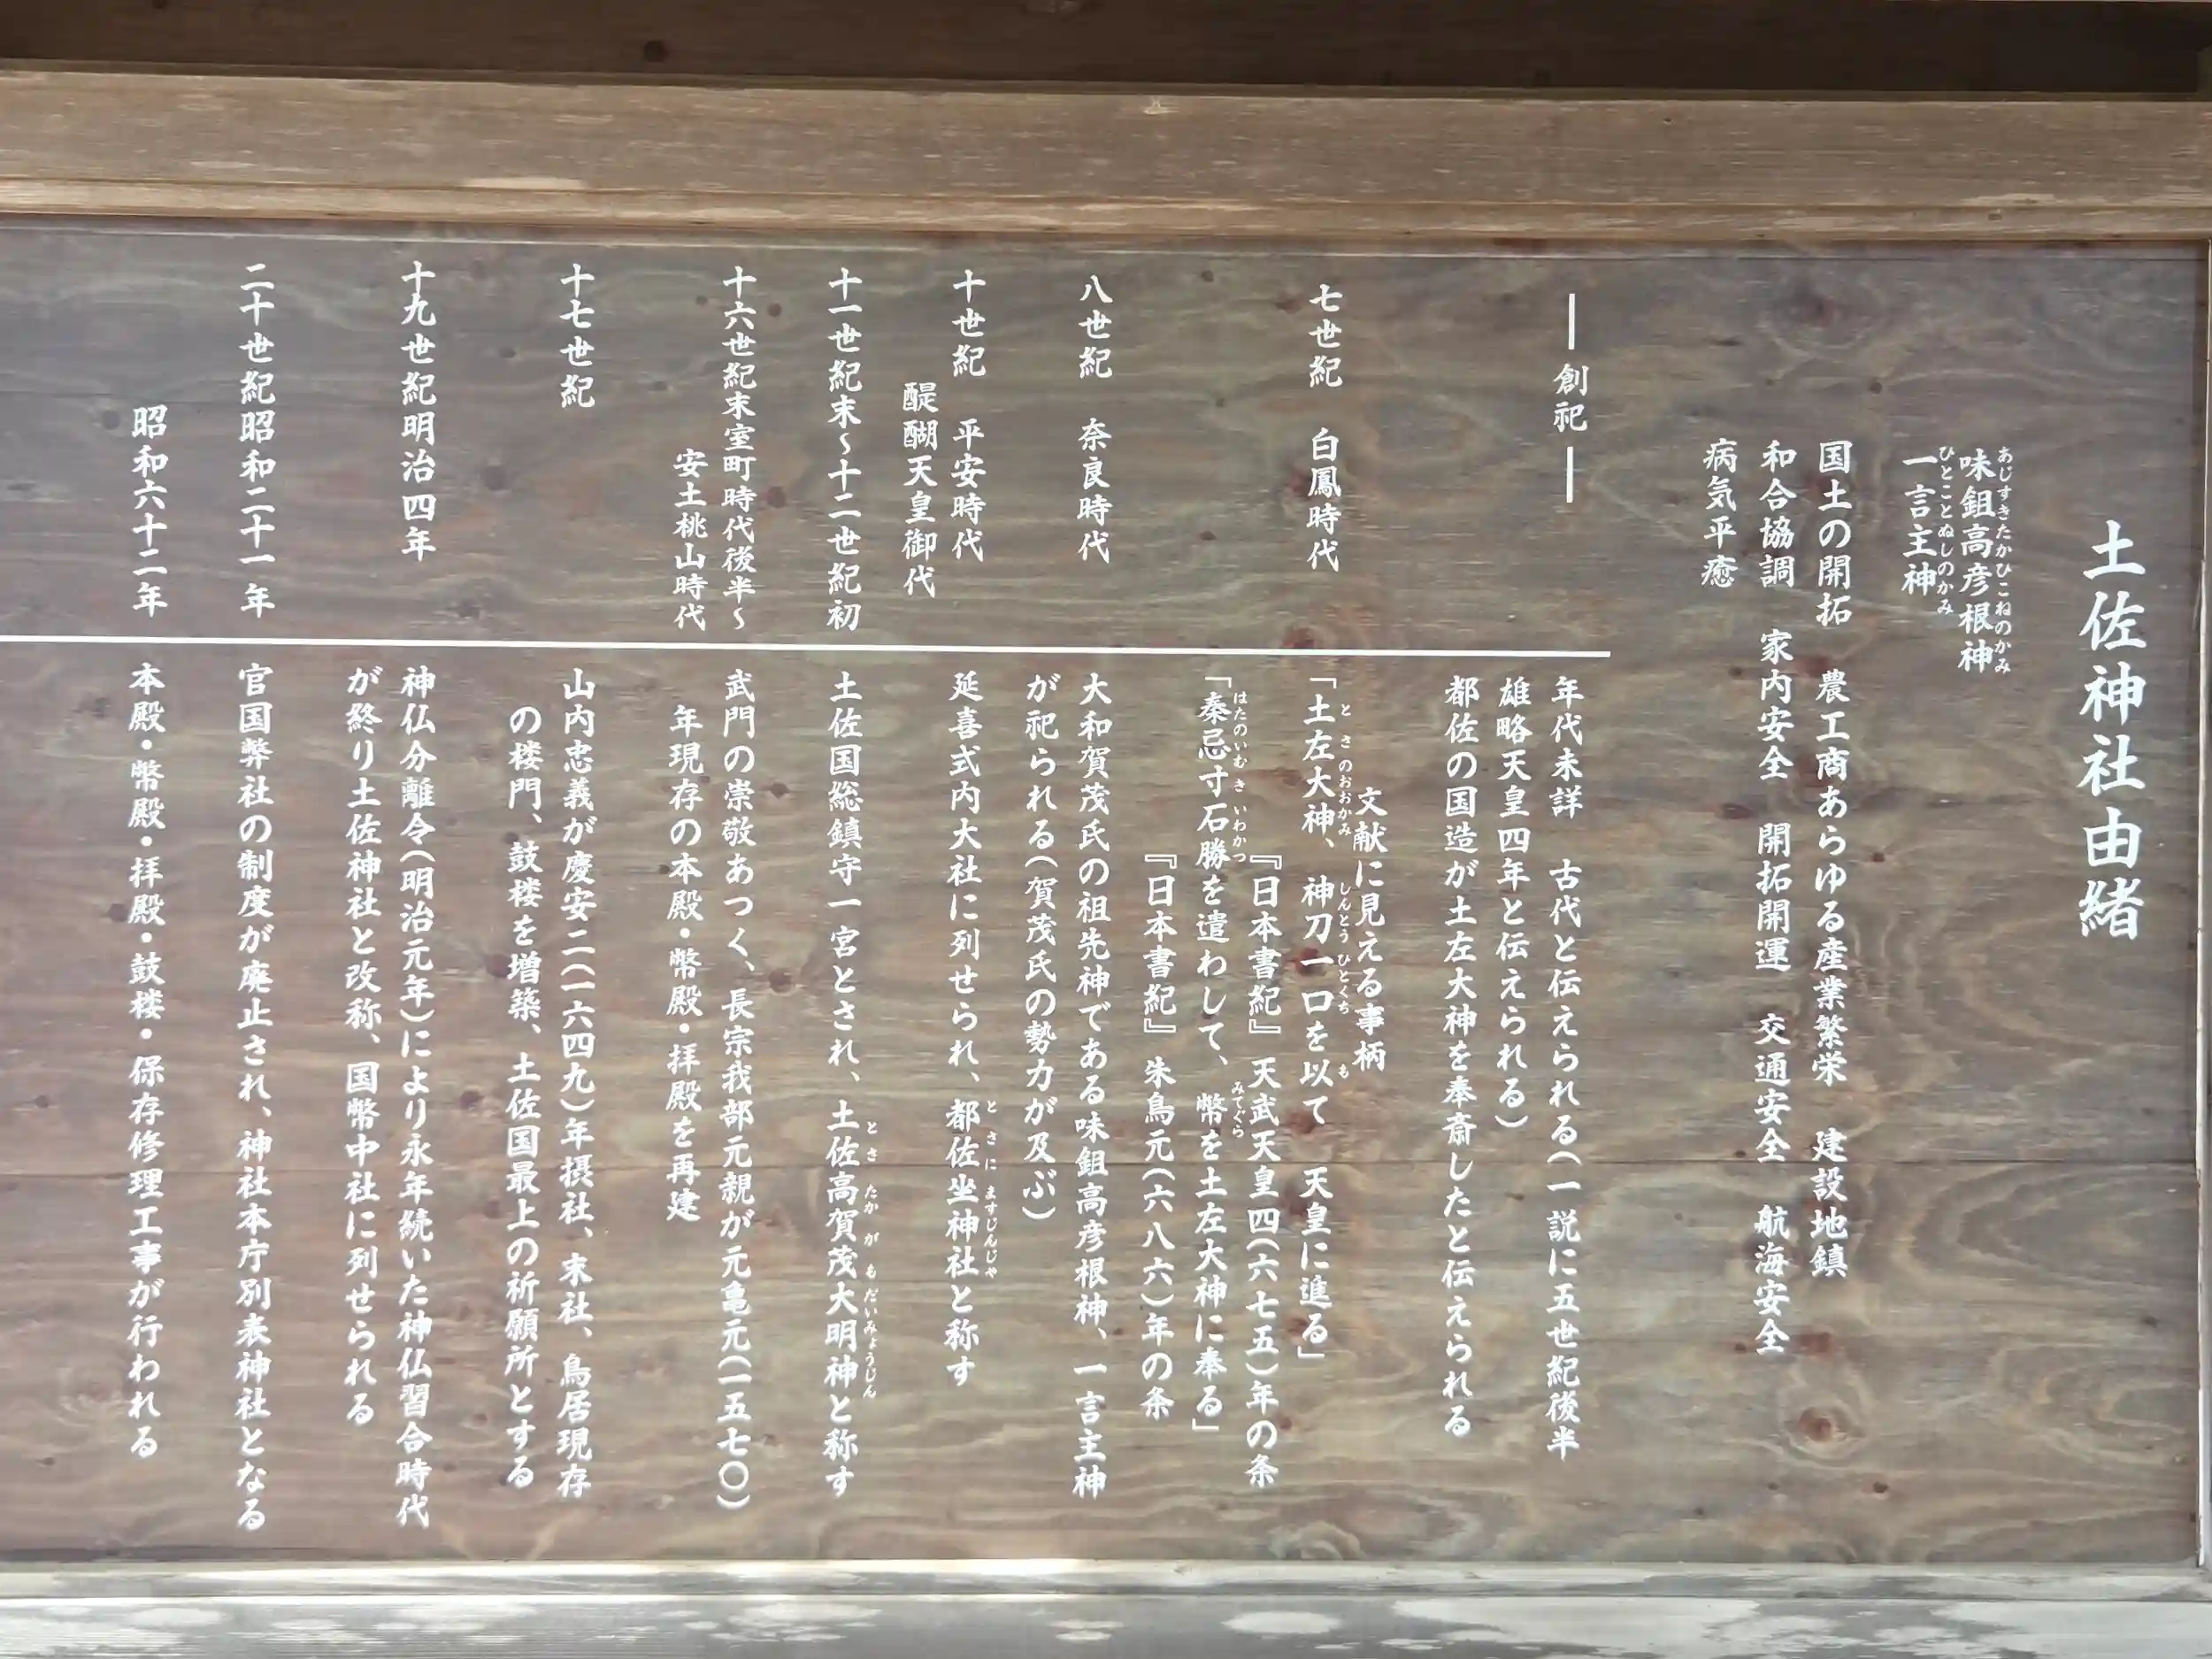 土佐神社由緒
味鉏高彦根神
あじすきたかひこねのかみ
一言主神
ひとことぬしのかみ
国土の開拓　農工商あらゆる産業繁栄　建設地鎮
和合協調　家内安全　開拓開運　交通安全　航海安全
病気平癒
―創祀―
年代未詳　古代と伝えられる(一説に五世紀後半
雄略天皇四年と伝えられる)
都佐の国造が土左大神を奉斎したと伝えられる
文献に見える事柄
七世紀　白鳳時代
「土左大神、神刀一口を以て　天皇に進る」
とさのおおかみ　しんとうひとくち　も
『日本書紀』天武天皇四(六七五)年の条
「秦忌寸石勝を遣わして、幣を土左大神に奉る」
はたのいむき　いわかつ　みてぐら
『日本書紀』朱鳥元(六八六)年の条
八世紀　奈良時代
大和賀茂氏の祖先神である味鉏高彦根神、一言主神
が祀られる(賀茂氏の勢力が及ぶ)
十世紀　平安時代
醍醐天皇御代
延喜式内大社に列せられ、都佐坐神社と称す
とさにますじんじゃ
十一世紀末～十二世紀初
土佐国総鎮守一宮とされ、土佐高賀茂大明神と称す
とさ　たかがもだいみょうじん
十六世紀末室町時代後半～
安土桃山時代
武門の崇敬あつく、長宗我部元親が元亀元(一五七〇)
年現存の本殿・幣殿・拝殿を再建
十七世紀
山内忠義が慶安二(一六四九)年摂社、末社、鳥居現存
の楼門、鼓楼を増築、土佐国最上の祈願所とする
十九世紀明治四年
神仏分離令(明治元年)により永年続いた神仏習合時代
が終り土佐神社と改称、国幣中社に列せられる
二十世紀昭和二十一年
官国弊社の制度が廃止され、神社本庁別表神社となる
昭和六十二年
本殿・幣殿・拝殿・鼓楼・保存修理工事が行われる